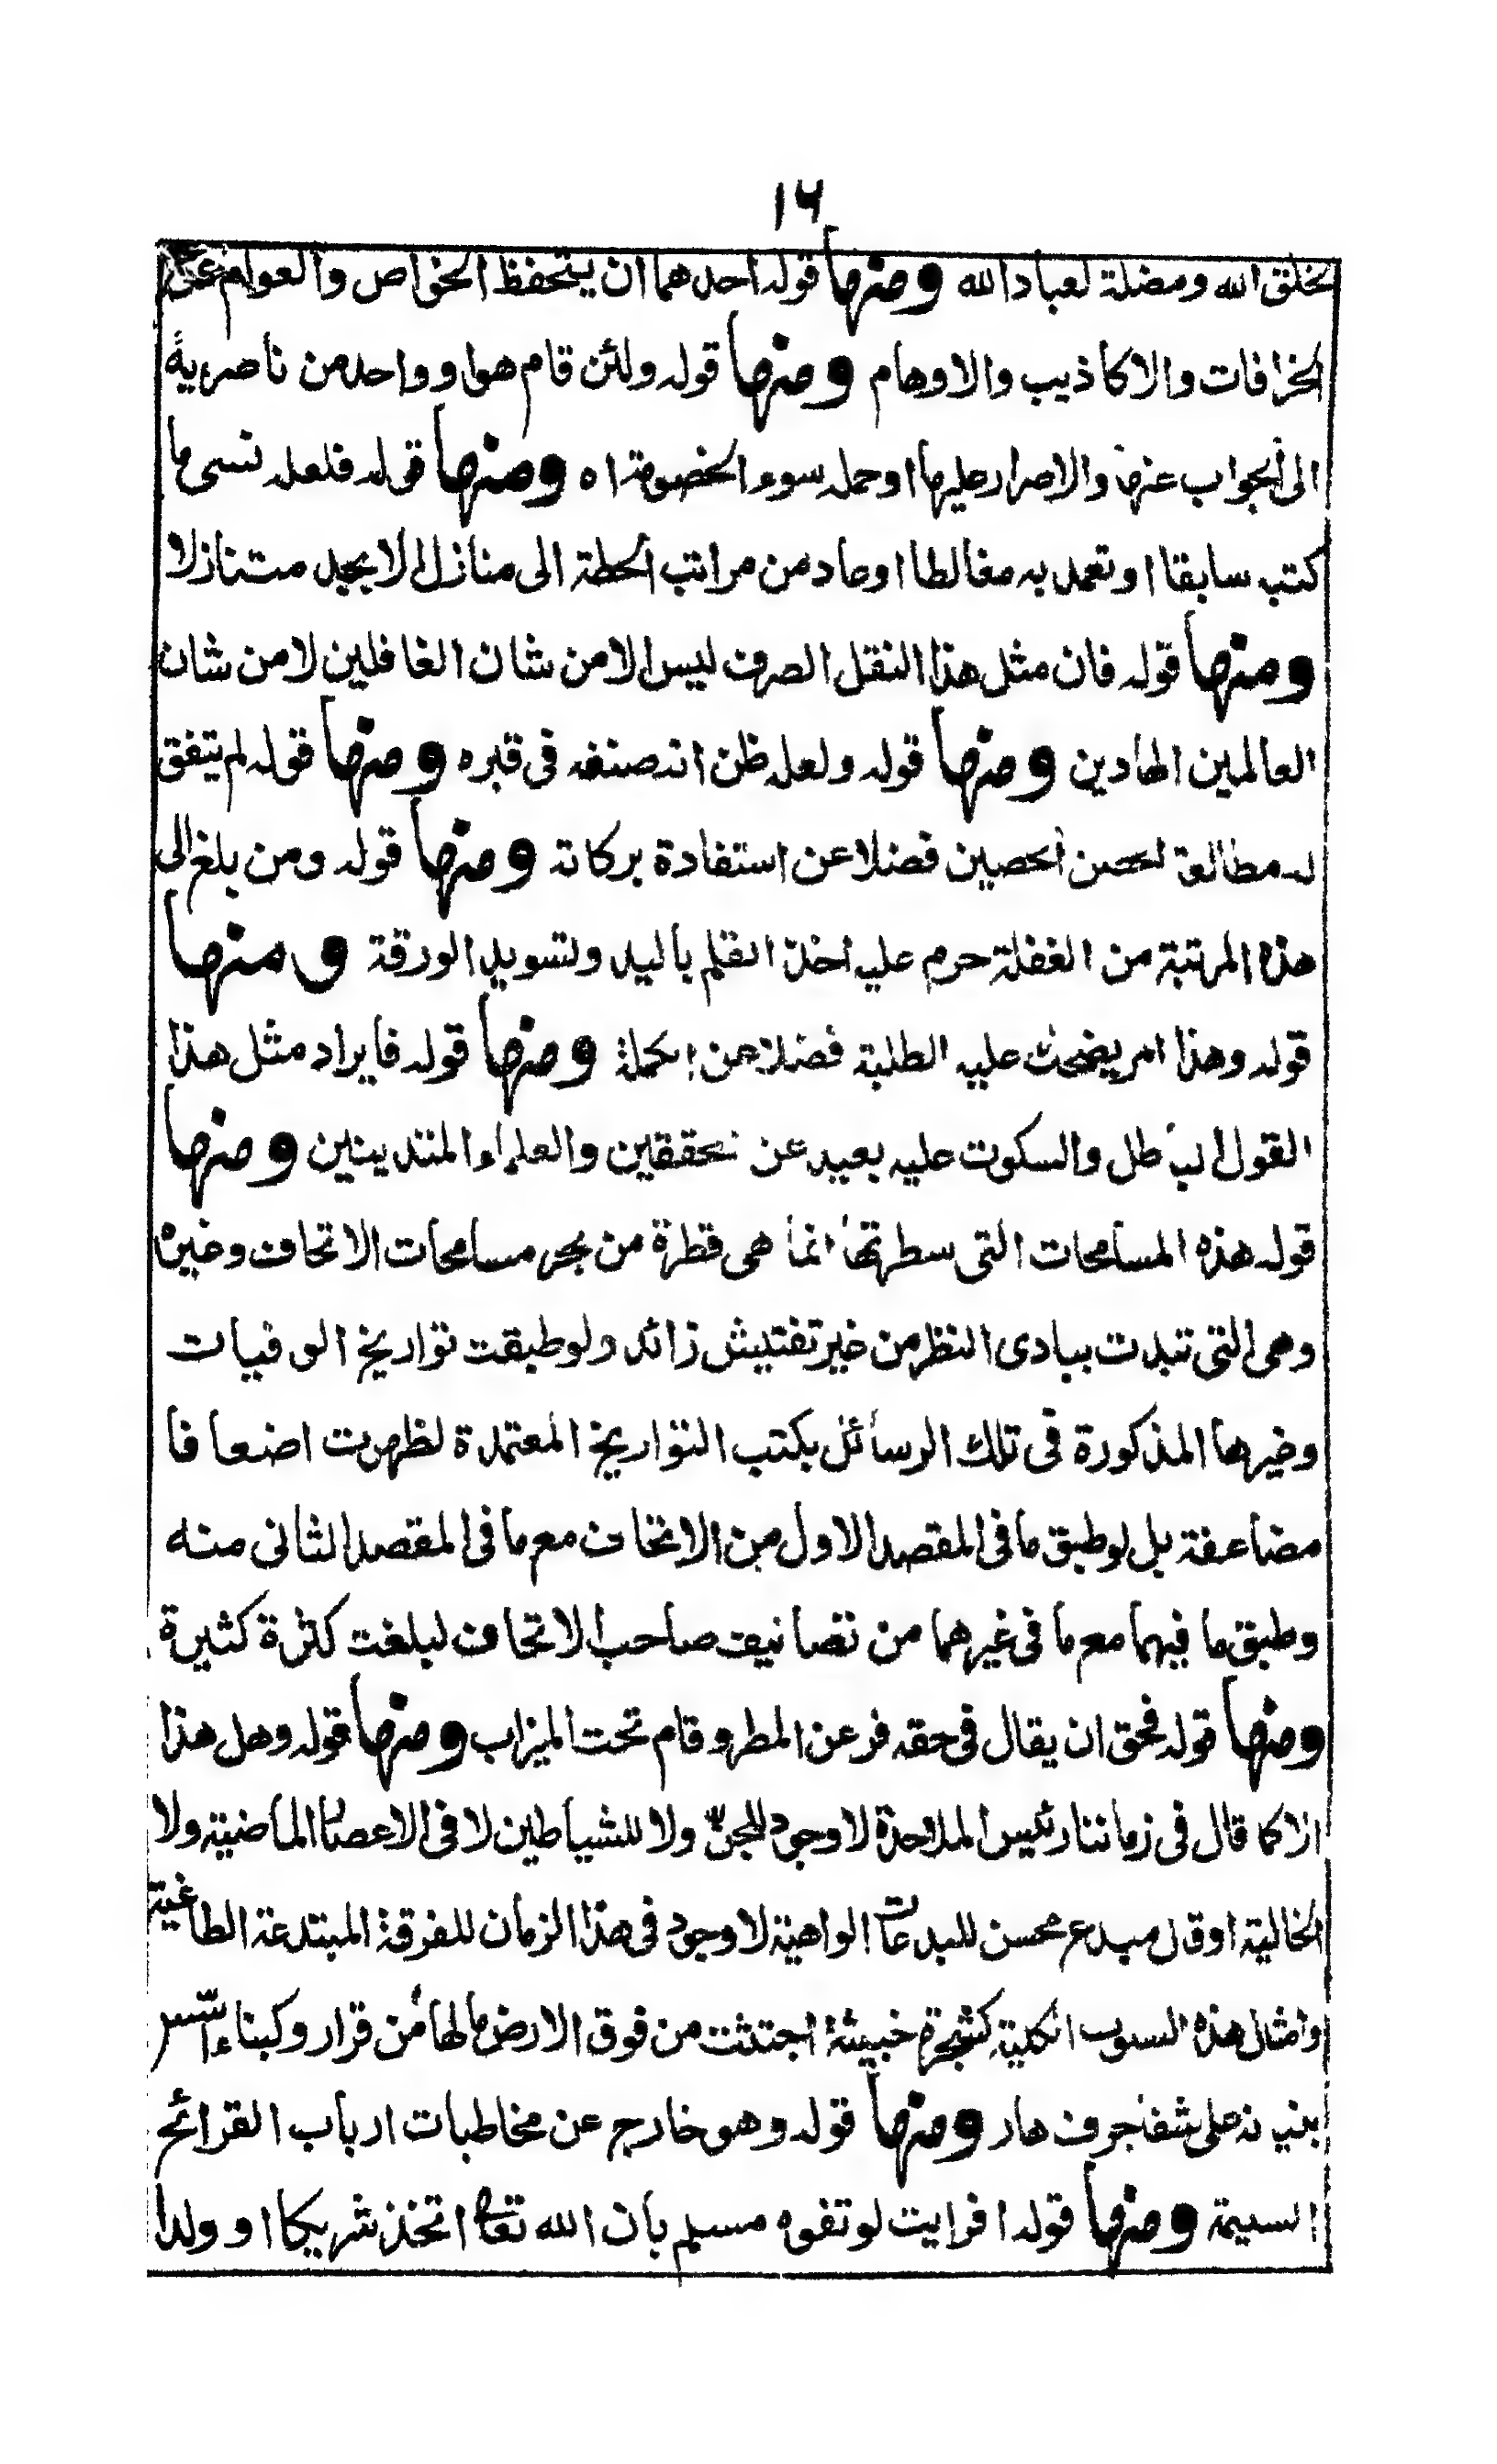 ١٦
لخلق الله ومضلة لعباد الله ومنها قوله احدهما ان يتحفظ الخواص والعوام عن
الخرافات والاكاذيب والاوهام ومنها قوله ولئن قام هو او واحد من ناصريه
الى الجواب عنها والاصرار عليها او حمله سوء الخصومة اه ومنها قوله فلعله نسى ما
كتب سابقا او تعمد به مغالطا او عاد من مراتب الحطة الى منازل الابجد متنازلا
ومنها قوله فان مثل هذا النقل الصرف ليس الا من شان الغافلين لا من شان
العالمين الهادين ومنها قوله ولعله ظن انه صنفه فى قبره ومنها قوله لم يتفق
له مطالعة الحصن الحصين فضلا عن استفادة بركاته ومنها قوله ومن بلغ الى
هذه المرتبة من الغفلة حرم عليه اخذ القلم باليد ولتسويد الورقة ومنها
قوله وهذا امر يضحك عليه الطلبة فضلا عن الكملة ومنها قوله فايراد مثل هذا
القول الباطل والسكوت عليه بعيد عن المحققين والعلماء المتدينين ومنها
قوله هذه المسامحات التى سطرتها انما هى قطرة من بحر مسامحات الاتحاف وغيره
وهى التى تبدت ببادى النظر من غير تفتيش زائد ولو طبقت تواريخ الوفيات
وغيرها المذكورة فى تلك الرسائل بكتب التواريخ المعتمدة لظهرت اضعافا
مضاعفة بل لو طبق ما فى المقصد الاول من الاتحاف مع ما فى المقصد الثانى منه
وطبق ما فيهما مع ما فى غيرهما من تصانيف صاحب الاتحاف لبلغت كثرة كثيرة
ومنها قوله فحق ان يقال فى حقه فر عن المطر وقام تحت الميزاب ومنها قوله وهل هذا
الا كما قال فى زماننا رئيس الملاحدة لا وجود للجن ولا للشياطين لا فى الاعصار الماضية ولا
الخالية او قال مبدع محسن للبدعات الواهية لا وجود فى هذا الزمان للفرقة المبتدعة الطاغية
وامثال هذه السلوب الكلية كشجرة خبيثة اجتثت من فوق الارض ما لها من قرار وكبناء اسس
بنيانه على شفا جرف هار ومنها قوله وهو خارج عن مخاطبات ارباب القرائح
السليمة ومنها قوله افرايت لو تفوه مسلم بان الله تعالى اتخذ شريكا او ولدا